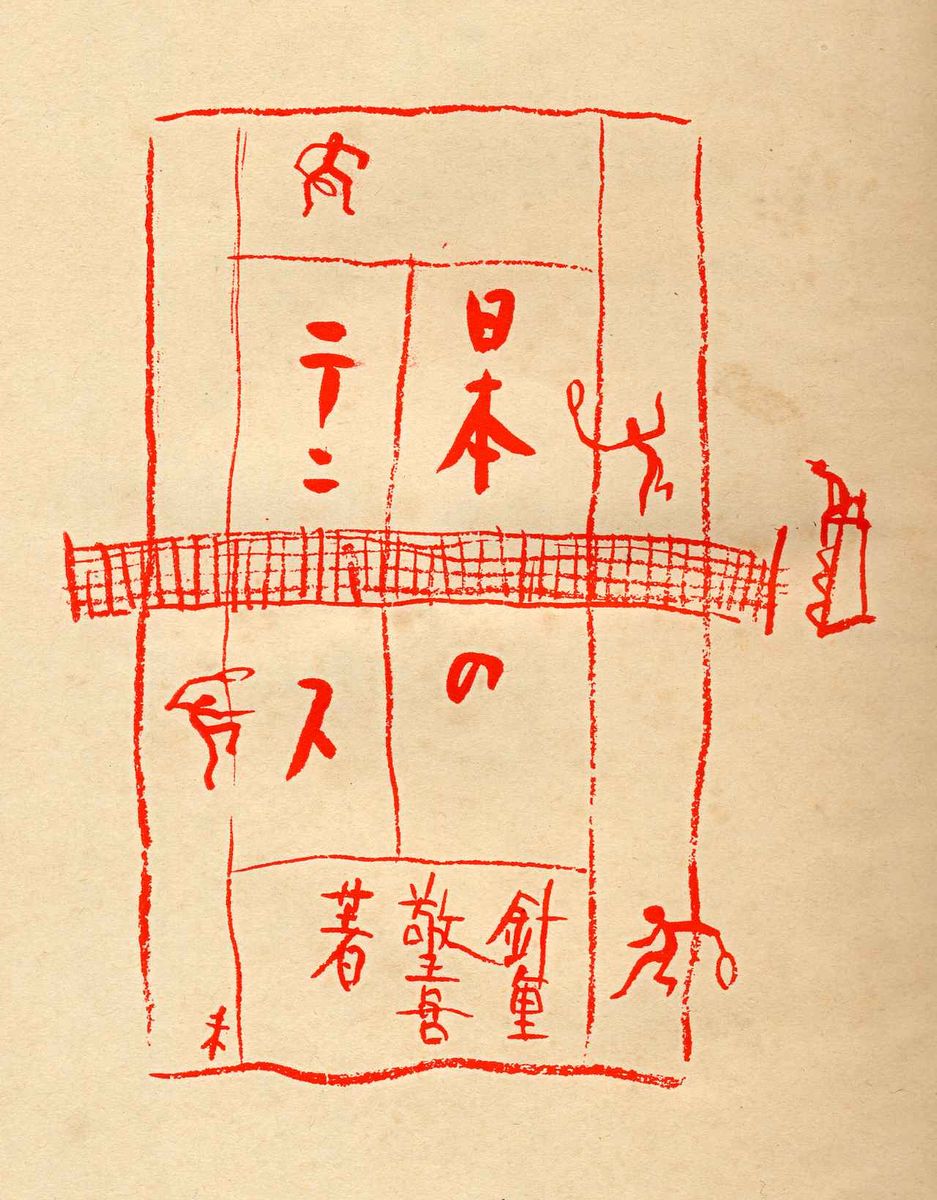 日本の
テニス
針重
敬喜
著
未